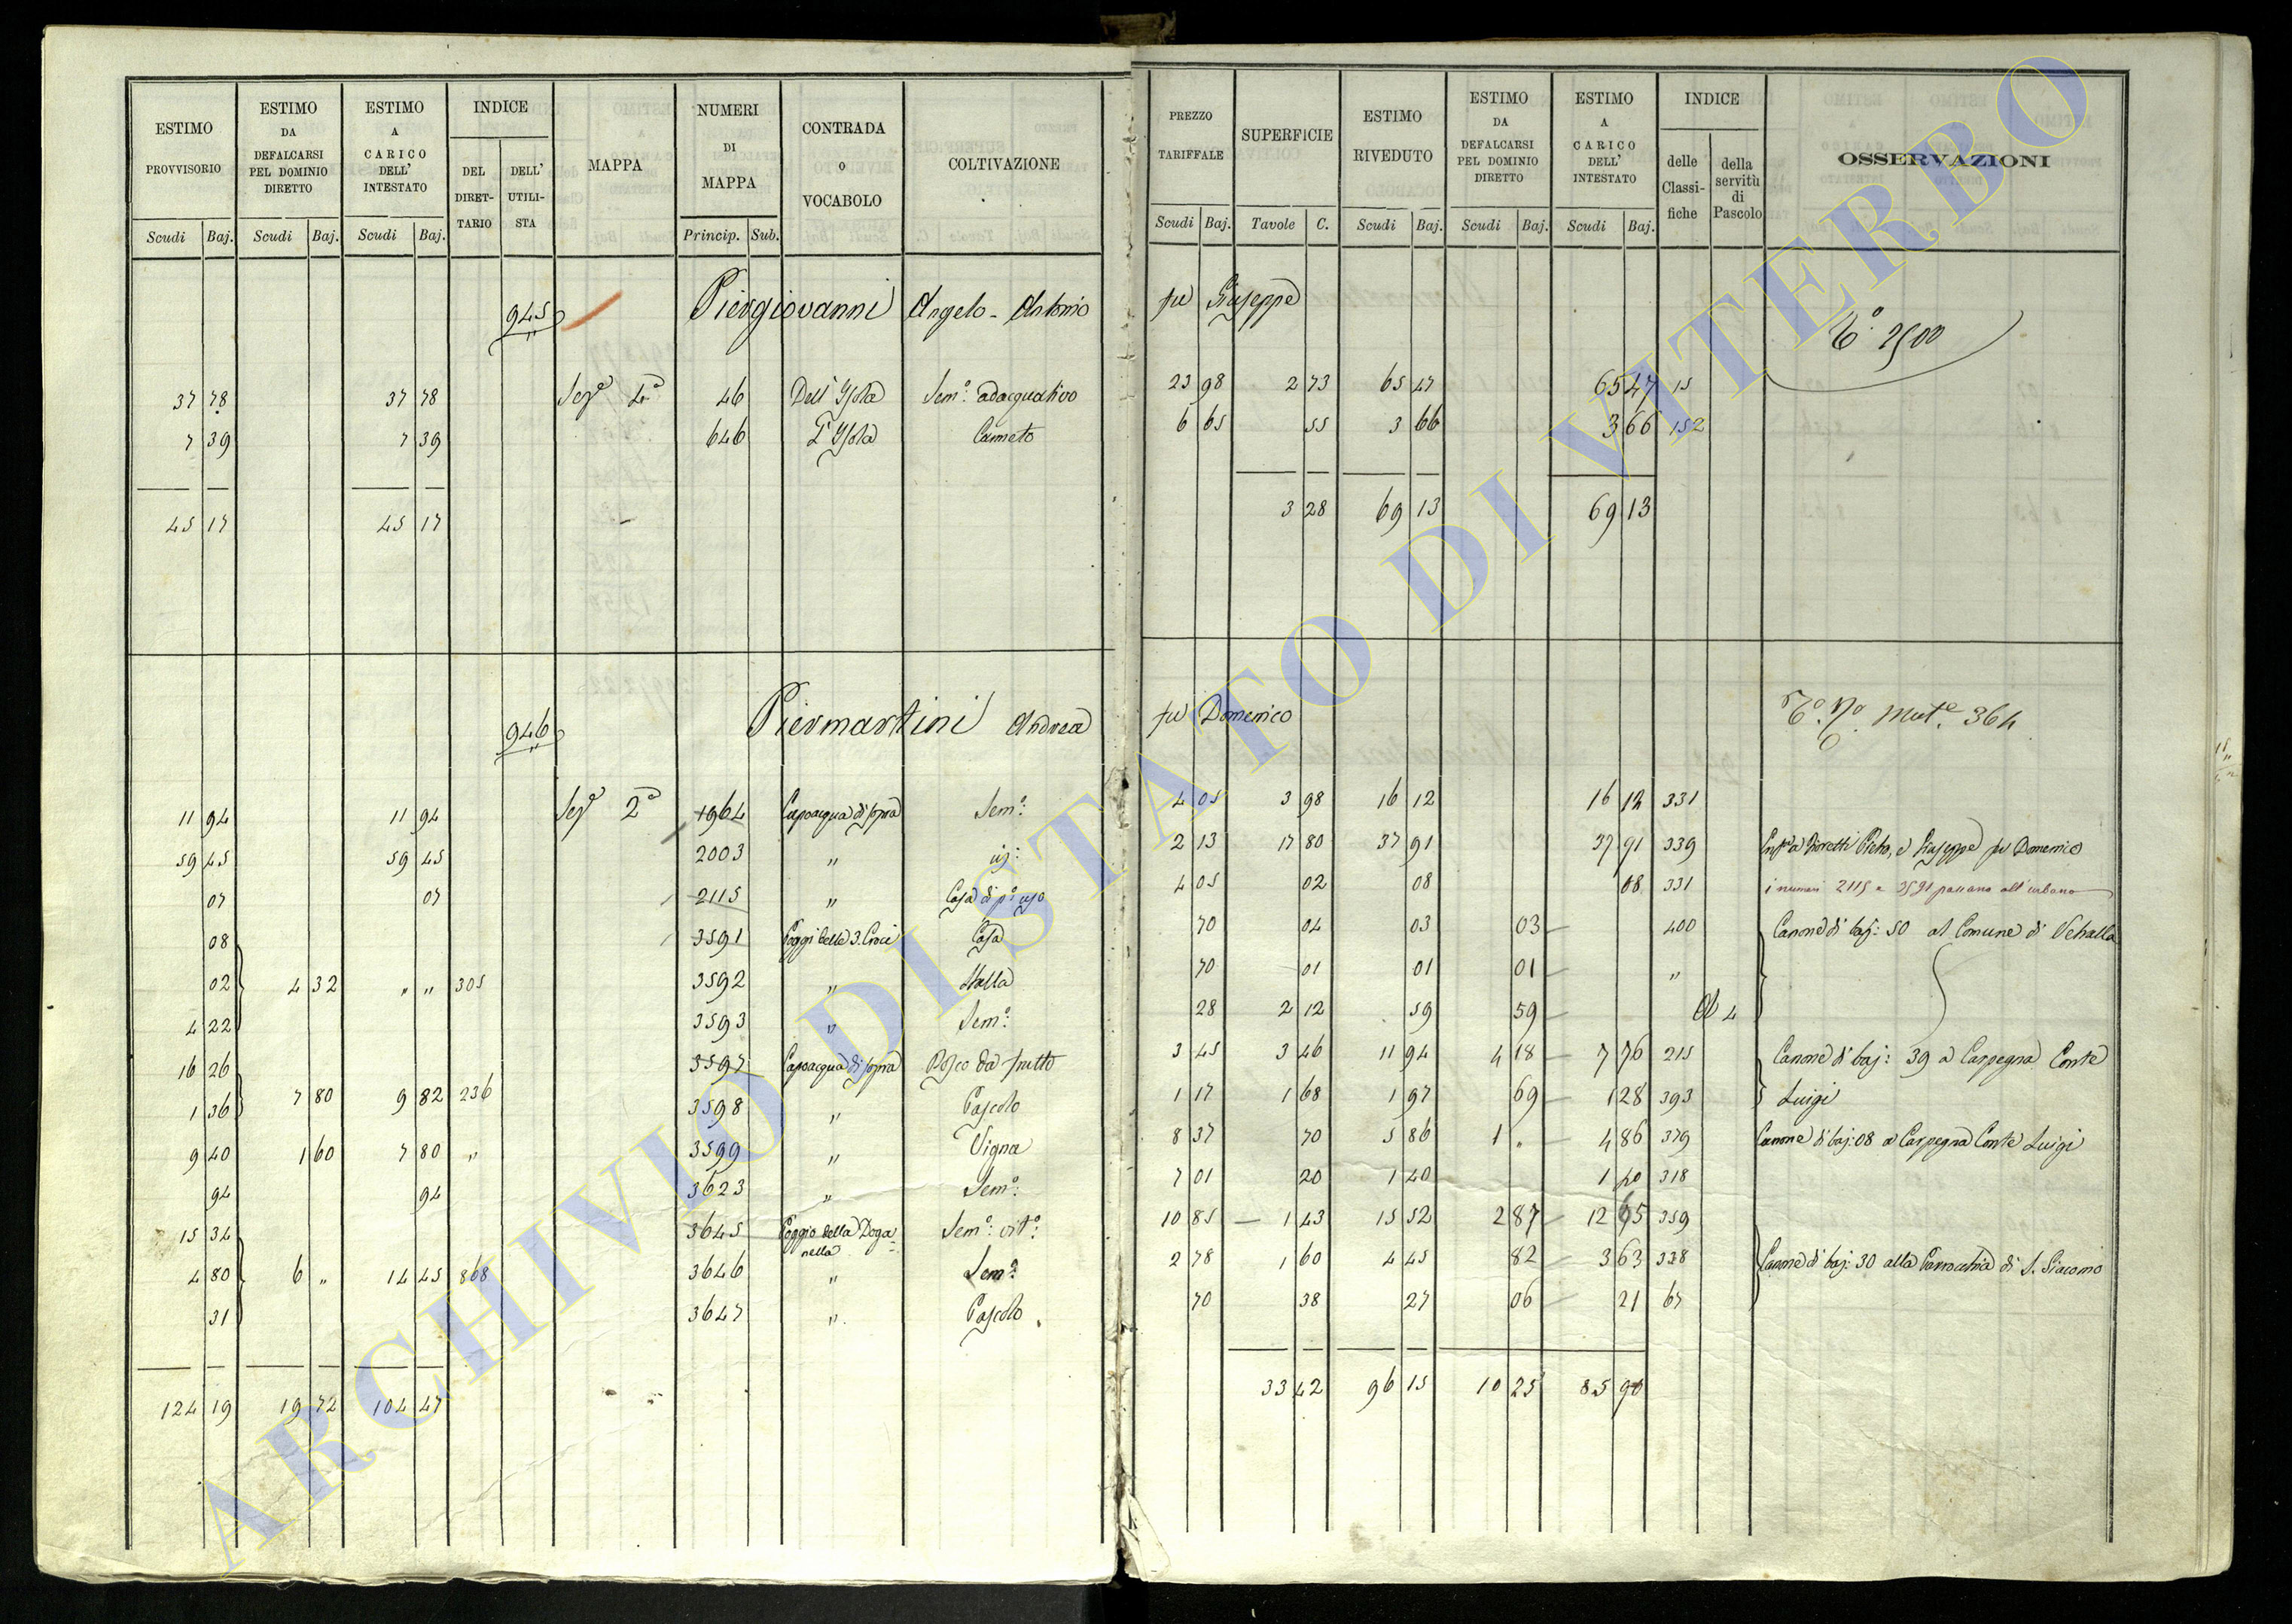 ESTIMO PROVVISORIO | ESTIMO DA DEFALCARSI PEL DOMINIO DIRETTO | ESTIMO A CARICO DELL' INTESTATO | INDICE DEL DIRET-TARIO | DELL' UTILI-STA | MAPPA | NUMERI DI MAPPA | CONTRADA O VOCABOLO | COLTIVAZIONE | PREZZO TARIFFALE | SUPERFICIE | ESTIMO RIVEDUTO | ESTIMO DA DEFALCARSI PEL DOMINIO DIRETTO | ESTIMO A CARICO DELL' INTESTATO | INDICE delle Classi-fiche | della servitù di Pascolo | OSSERVAZIONI
Scudi Baj. | Scudi Baj. | Scudi Baj. | Princip. Sub. | Scudi Baj. | Tavole C. | Scudi Baj. | Scudi Baj. | Scudi Baj.
945 Piergiovanni Angelo - Antonio fu Giuseppe
2500
37 78 | 37 78 | Sez.e 4a | 46 | Dell'Isola | Sem.o adacquativo | 23 98 | 2 73 | 65 47 | 65 47 | 15
7 39 | 7 39 | 646 | L'Isola | Canneto | 6 65 | 55 | 3 66 | 3 66 | 152
45 17 | 45 17 | 3 28 | 69 13 | 69 13
946 Piermartini Andrea fu Domenico
Mut.e 364
11 94 | 11 94 | Sez.e 2a | 1964 | Capoacqua di sopra | Sem.o | 4 05 | 3 98 | 16 12 | 16 12 | 331
59 45 | 59 45 | 2003 | " | id: | 2 13 | 17 80 | 37 91 | 37 91 | 339 | Pietro, e Giuseppe fu Domenico
07 | 07 | 2115 | " | Casa di p.o uso | 4 05 | 02 | 08 | 08 | 331 | i numeri 2115 e 3591 passano all'urbano
08 | 3591 | Poggi delle 3. Croci | Casa | 70 | 04 | 03 | 03 | 400 | Canone di baj: 50 al Comune di Vetralla
02 | 4 32 | " " | 305 | 3592 | " | Stalla | 70 | 01 | 01 | 01 | "
4 22 | 3593 | " | Sem.o | 28 | 2 12 | 59 | 59 | 4
16 26 | 3597 | Capoacqua di sopra | Bosco da frutto | 3 45 | 3 46 | 11 94 | 4 18 | 7 76 | 215 | Canone di baj: 39 a Carpegna Conte
1 36 | 7 80 | 9 82 | 236 | 3598 | " | Pascolo | 1 17 | 1 68 | 1 97 | 69 | 1 28 | 393 | Luigi
9 40 | 1 60 | 7 80 | " | 3599 | " | Vigna | 8 37 | 70 | 5 86 | 1 " | 4 86 | 379 | Canone di baj: 08 a Carpegna Conte Luigi
94 | 94 | 3623 | " | Sem.o | 7 01 | 20 | 1 40 | 1 40 | 318
15 34 | 3645 | Poggio della Doga=nella | Sem.o vit.o | 10 85 | 1 43 | 15 52 | 2 87 | 12 65 | 359
4 80 | 6 " | 14 45 | 868 | 3646 | " | Sem.o | 2 78 | 1 60 | 4 45 | 82 | 3 63 | 338 | Canone di baj: 30 alla Parrocchia di S. Giacomo
31 | 3647 | " | Pascolo | 70 | 38 | 27 | 06 | 21 | 67
124 19 | 19 72 | 104 47 | 33 42 | 96 15 | 10 25 | 85 90
ARCHIVIO DI STATO DI VITERBO